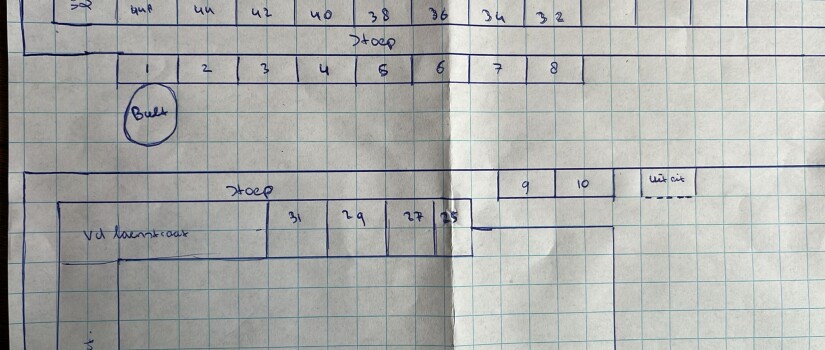 44A 44 42 40 38 36 34 32
Stoep
1 2 3 4 5 6 7 8
Bult
9 10 uitrit
Stoep
31 29 27 25